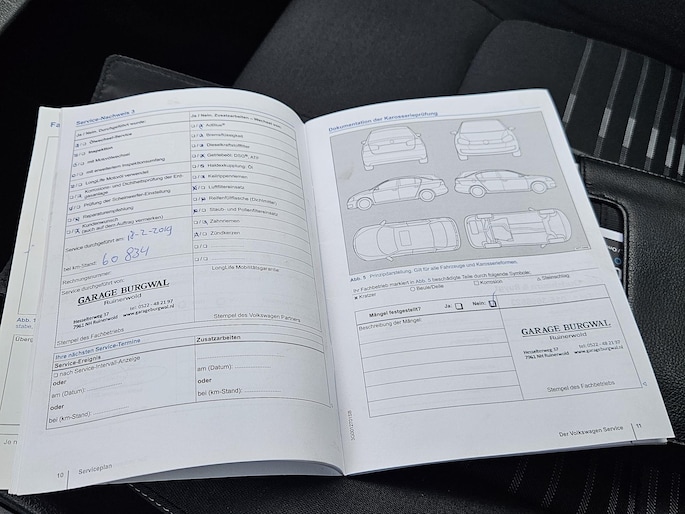 Service-Nachweis 3
Ja / Nein, Durchgeführt wurde:
Ölwechsel-Service
Inspektion
mit Motorölwechsel
mit erweitertem Inspektionsumfang
LongLife Motoröl verwendet
Korrosions- und Dichtheitsprüfung der Erdgasanlage
Prüfung der Scheinwerfer-Einstellung
Reparaturempfehlung
Kundenwunsch
(auch auf dem Auftrag vermerken)
Service durchgeführt am: 18-2-2019
bei km-Stand: 60 834
Rechnungsnummer:
Service durchgeführt von:
GARAGE BURGWAL
Ruinerwold
Hesselterweg 37 tel: 0522 - 48 21 97
7961 NH Ruinerwold www.garageburgwal.nl
Stempel des Fachbetriebs
Ja / Nein, Zusatzarbeiten
AdBlue®
Bremsflüssigkeit
Dieselkraftstofffilter
Getriebeöl: DSG®, 4
Haldexkupplung: Öl
Keilrippenriemen
Luftfiltereinsatz
Reifenfüllflasche (Dichtmittel)
Staub- und Pollenfiltereinsatz
Zahnriemen
Zündkerzen
LongLife Mobilitätsgarantie
Stempel des Volkswagen Partners
Ihre nächsten Service-Termine
Service-Ereignis
Zusatzarbeiten
nach Service-Intervall-Anzeige
oder
am (Datum):
oder
bei (km-Stand):
am (Datum):
oder
bei (km-Stand):
10 | Serviceplan
Dokumentation der Karosserieprüfung
Abb. 5 Prinzipdarstellung. Gilt für alle Fahrzeuge und Karosserieformen.
Ihr Fachbetrieb markiert in Abb. 5 beschädigte Teile durch folgende Symbole:
Kratzer Beule/Delle Korrosion Steinschlag
Mängel festgestellt? Ja: Nein:
Beschreibung der Mängel:
GARAGE BURGWAL
Ruinerwold
Hesselterweg 37 tel: 0522 - 48 21 97
7961 NH Ruinerwold www.garageburgwal.nl
Stempel des Fachbetriebs
Der Volkswagen Service | 11